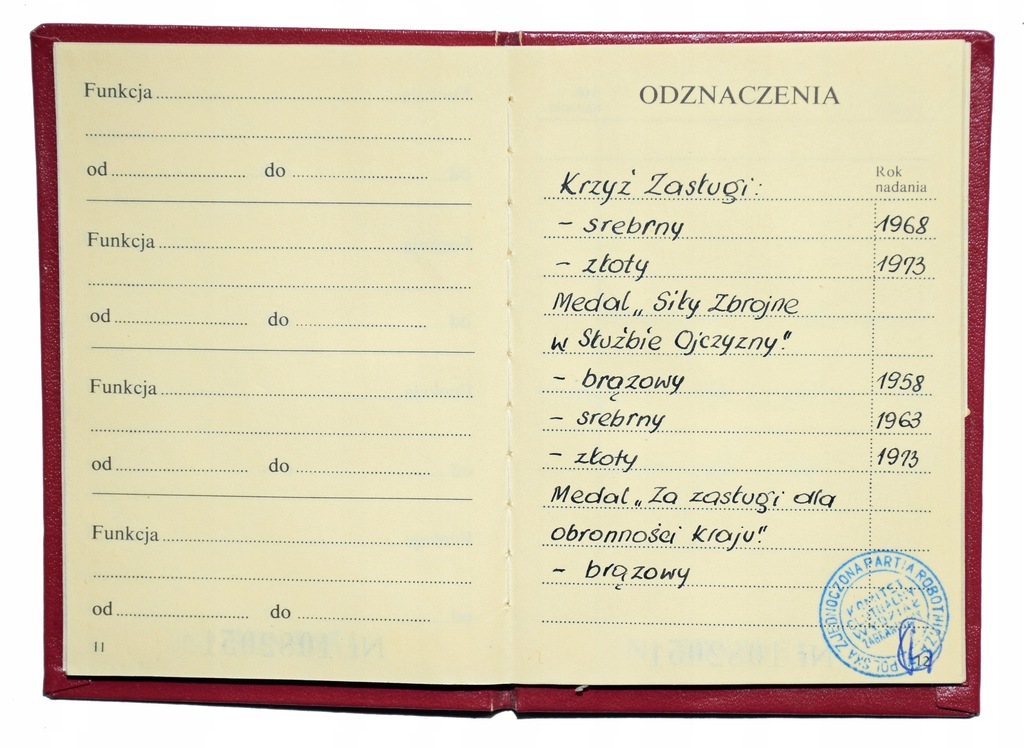 Funkcja
od do
Funkcja
od do
Funkcja
od do
Funkcja
od do
11
ODZNACZENIA
Rok
nadania
Krzyż Zasługi:
- srebrny 1968
- złoty 1973
Medal „Siły Zbrojne
w Służbie Ojczyzny"
- brązowy 1958
- srebrny 1963
- złoty 1973
Medal „Za zasługi dla
obronności kraju"
- brązowy
POLSKA ZJEDNOCZONA PARTIA ROBOTNICZA
KOMITET
CENTRALNY
WYDZIAŁ
12
Nr 1082051